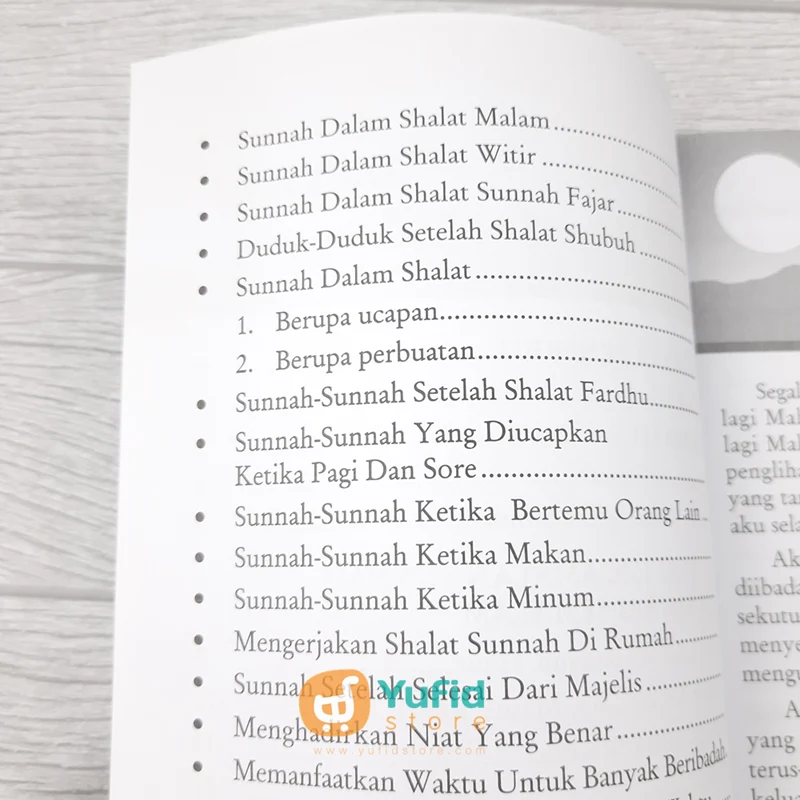 • Sunnah Dalam Shalat Malam....................
• Sunnah Dalam Shalat Witir ....................
• Sunnah Dalam Shalat Sunnah Fajar............
• Duduk-Duduk Setelah Shalat Shubuh .........
• Sunnah Dalam Shalat..............................
1. Berupa ucapan...................................
2. Berupa perbuatan..............................
• Sunnah-Sunnah Setelah Shalat Fardhu.........
• Sunnah-Sunnah Yang Diucapkan
Ketika Pagi Dan Sore..............................
• Sunnah-Sunnah Ketika Bertemu Orang Lain...
• Sunnah-Sunnah Ketika Makan..................
• Sunnah-Sunnah Ketika Minum.................
• Mengerjakan Shalat Sunnah Di Rumah.........
• Sunnah Setelah Selesai Dari Majelis............
• Menghadirkan Niat Yang Benar...............
• Memanfaatkan Waktu Untuk Banyak Beribadah.
Yufid
store
www.yufidstore.com
lagi
lagi
yang
aku
yang